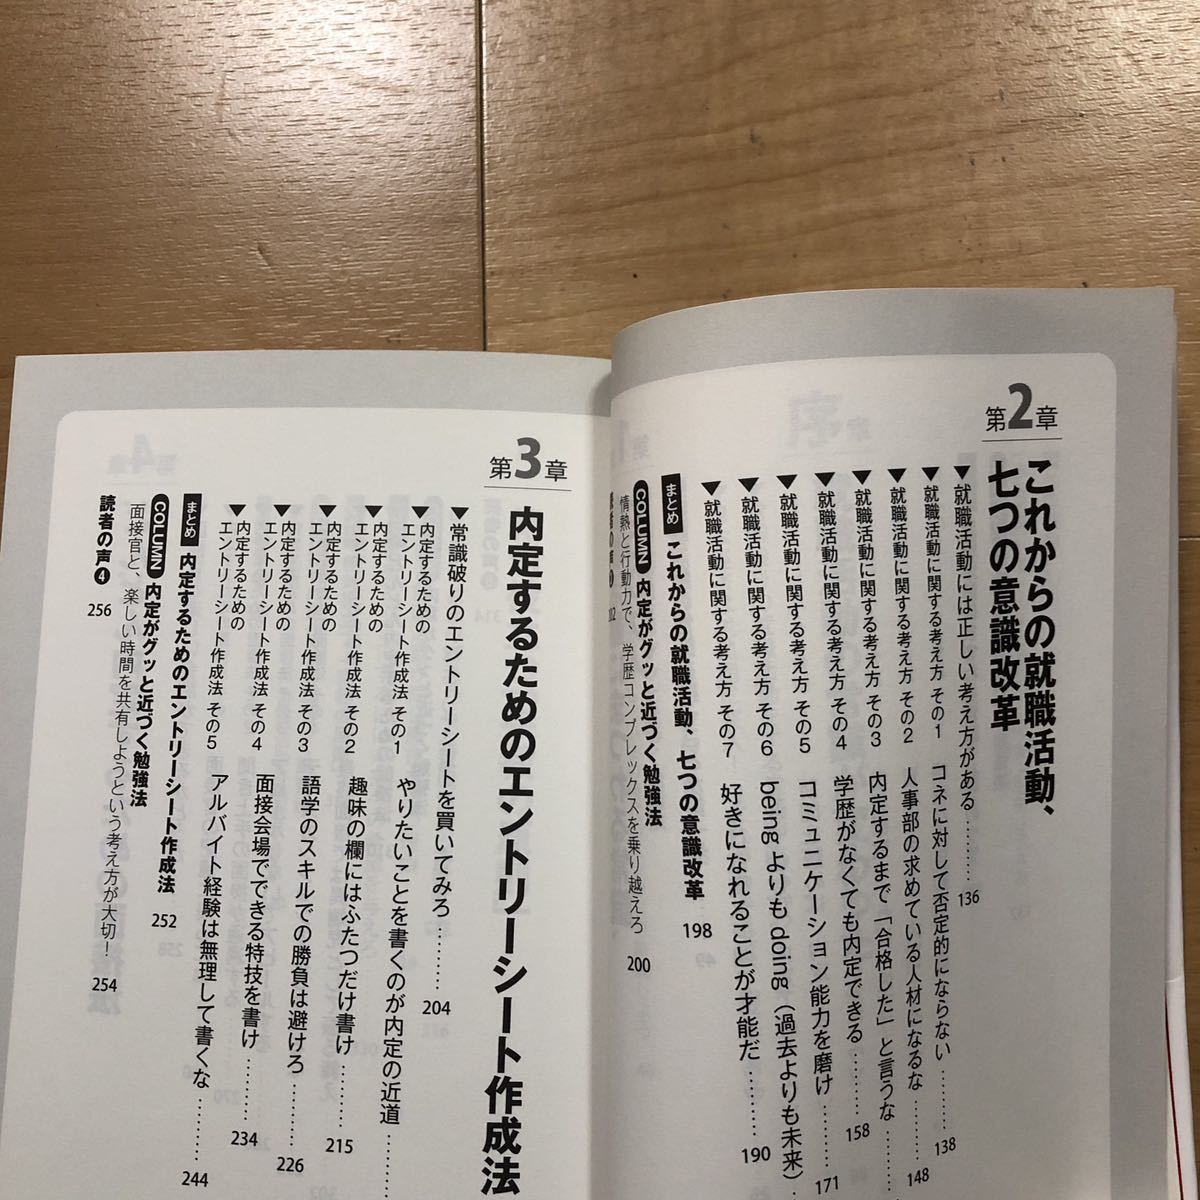 第2章
これからの就職活動、
七つの意識改革
▼就職活動には正しい考え方がある………136
▼就職活動に関する考え方 その1 コネに対して否定的にならない………138
▼就職活動に関する考え方 その2 人事部の求めている人材になるな………148
▼就職活動に関する考え方 その3 内定するまで「合格した」と言うな
▼就職活動に関する考え方 その4 学歴がなくても内定できる………158
▼就職活動に関する考え方 その5 コミュニケーション能力を磨け………171
▼就職活動に関する考え方 その6 being よりも doing(過去よりも未来)
▼就職活動に関する考え方 その7 好きになれることが才能だ………190
まとめ これからの就職活動、七つの意識改革 198
COLUMN 内定がグッと近づく勉強法
情熱と行動力で、学歴コンプレックスを乗り越えろ 200
第3章
内定するためのエントリーシート作成法
▼常識破りのエントリーシートを買いてみろ………204
▼内定するための
エントリーシート作成法 その1 やりたいことを書くのが内定の近道
▼内定するための
エントリーシート作成法 その2 趣味の欄にはふたつだけ書け………215
▼内定するための
エントリーシート作成法 その3 語学のスキルでの勝負は避けろ………226
▼内定するための
エントリーシート作成法 その4 面接会場でできる特技を書け………234
▼内定するための
エントリーシート作成法 その5 アルバイト経験は無理して書くな………244
まとめ 内定するためのエントリーシート作成法 252
COLUMN 内定がグッと近づく勉強法
面接官と、楽しい時間を共有しようという考え方が大切! 254
読者の声❹ 256